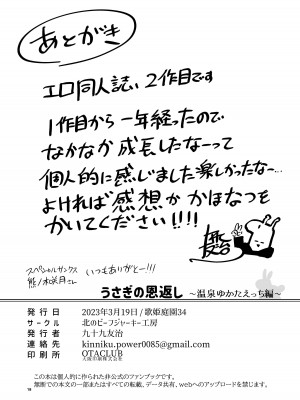 あとがき
エロ同人誌、2作目です
1作目から一年経ったので
なかなか成長したなーって
個人的に感じました楽しかったなー…
よければ感想かかほなつを
かいてください!!!!
スペシャルサンクス
いつもありがとー!!!
うさぎの恩返し
～温泉ゆかたえっち編～
発行日 2023年3月19日/歌姫庭園34
サークル 北のビーフジャーキー工房
発行者 九十九友治
連絡先 kinniku.power0085@gmail.com
印刷所 OTACLUB
大阪印刷株式会社
この本は個人的に作られた非公式のファンブックです。
無断での本文の一部またはすべての転載、データ共有、webへのアップロードを禁じます。